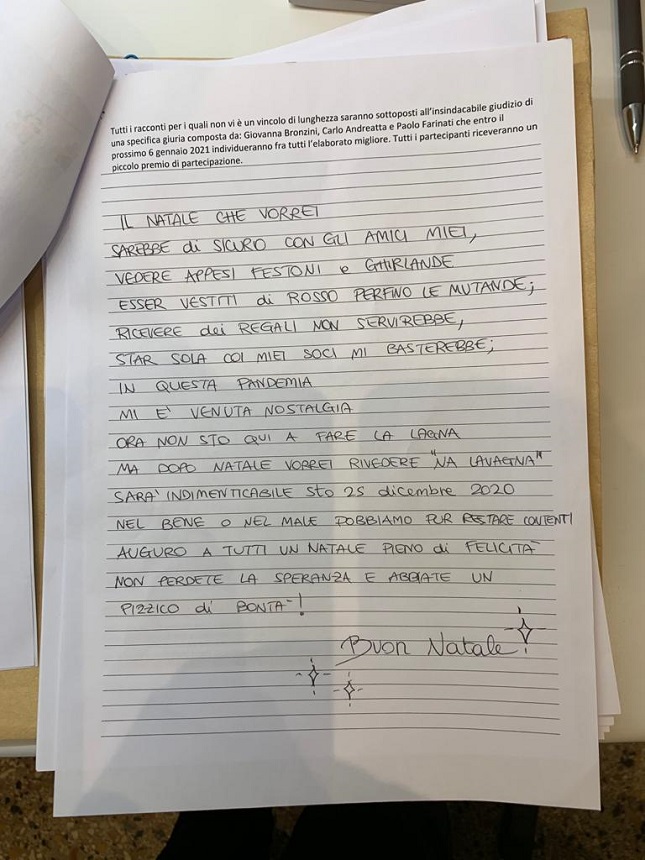 Tutti i racconti per i quali non vi è un vincolo di lunghezza saranno sottoposti all'insindacabile giudizio di
una specifica giuria composta da: Giovanna Bronzini, Carlo Andreatta e Paolo Farinati che entro il
prossimo 6 gennaio 2021 individueranno fra tutti l'elaborato migliore. Tutti i partecipanti riceveranno un
piccolo premio di partecipazione.
IL NATALE CHE VORREI
SAREBBE di SICURO CON GLI AMICI MIEI,
VEDERE APPESI FESTONI e GHIRLANDE
ESSER VESTITI di ROSSO PERFINO LE MUTANDE;
RICEVERE dei REGALI NON SERVIREBBE,
STAR SOLA COI MIEI SOCI MI BASTEREBBE;
IN QUESTA PANDEMIA
MI E' VENUTA NOSTALGIA
ORA NON STO QUI A FARE LA LAGNA
MA DOPO NATALE VORREI RIVEDERE "NA LAVAGNA"
SARA' INDIMENTICABILE Sto 25 dicembre 2020
NEL BENE O NEL MALE DOBBIAMO PUR RESTARE CONTENTI
AUGURO A TUTTI UN NATALE PIENO di FELICITA'
NON PERDETE LA SPERANZA E ABBIATE UN
PIZZICO di BONTA'!
Buon Natale